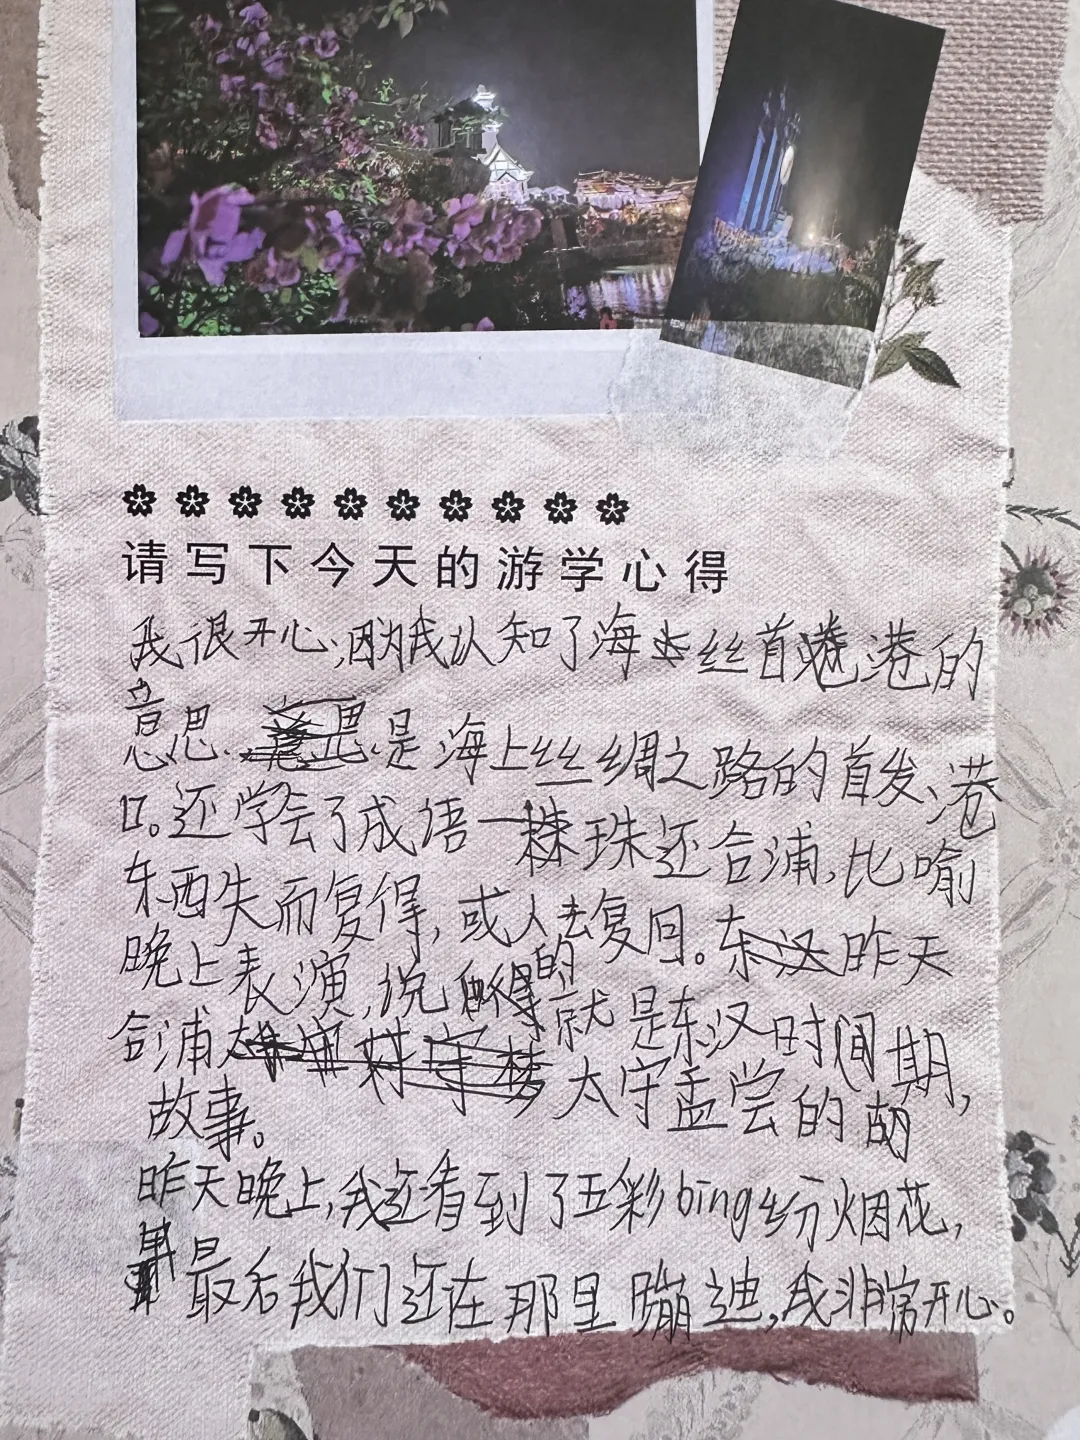 请写下今天的游学心得
我很开心,因为我认知了海丝首港的
意思.是海上丝绸之路的首发、港
口。还学会了成语一珠还合浦,比喻
东西失而复得,或人去复回。昨天
晚上表演,说的就是东汉时期,
合浦太守孟尝的
故事。
昨天晚上,我还看到了五彩bing纷烟花,
最后我们还在那里蹦迪,我非常开心。